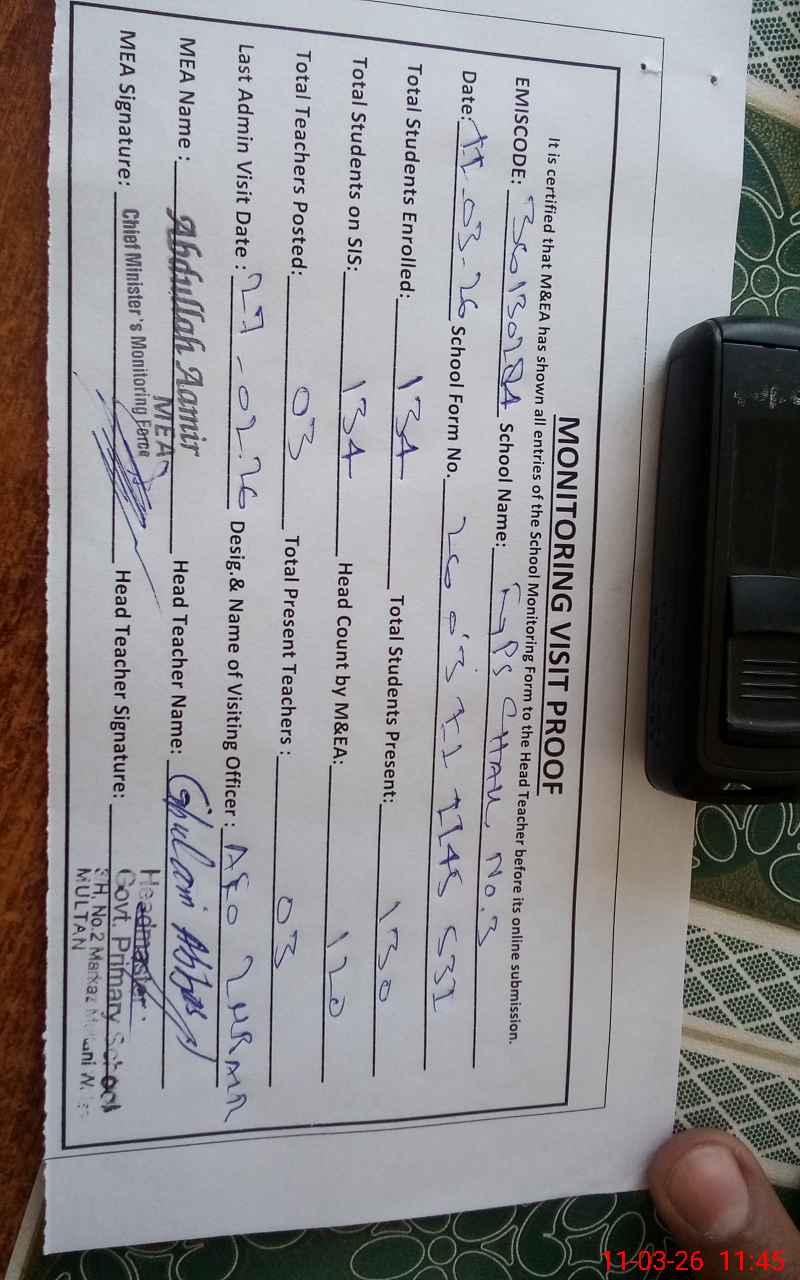 MONITORING VISIT PROOF
It is certified that M&EA has shown all entries of the School Monitoring Form to the Head Teacher before its online submission.
EMISCODE: School Name: CHAH No.3
Date: 11-03-26 School Form No.
Total Students Enrolled: 134 Total Students Present: 130
Total Students on SIS: 134 Head Count by M&EA: 120
Total Teachers Posted: 03 Total Present Teachers : 03
Last Admin Visit Date : 27-02-26 Desig.& Name of Visiting Officer : AEO
MEA Name : Abdullah Aamir Head Teacher Name: Ghulam Abbas
MEA
MEA Signature: Chief Minister's Monitoring Force Head Teacher Signature:
Headmaster
Govt. Primary School
CH, No.2 Markaz
MULTAN
11-03-26 11:45